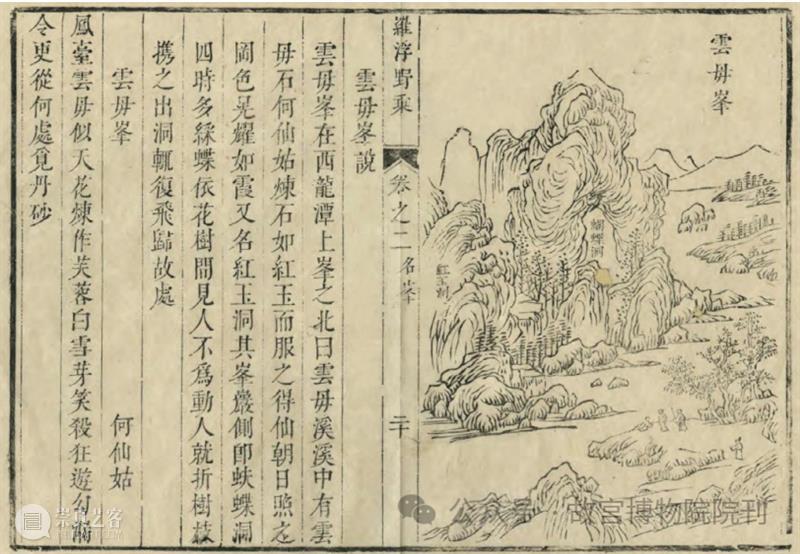 雲毋峯
蝴蝶洞
紅玉洞
羅浮野乘
卷之二
名峯
二十
雲毋峯說
雲毋峯在西龍潭上峯之北曰雲毋溪溪中有雲
毋石何仙姑煉石如紅玉而服之得仙朝日照之
岡色晃耀如霞又名紅玉洞其峯巖側卽蛺蝶洞
四時多綵蝶依花樹間見人不爲動人就折樹枝
携之出洞輒復飛歸故處
雲毋峯 何仙姑
鳳臺雲毋似天花煉作芙蓉白雪芽笑殺狂遊勾漏
令更從何處覓丹砂
公众号 · 故宫博物院院刊
崇真艺客